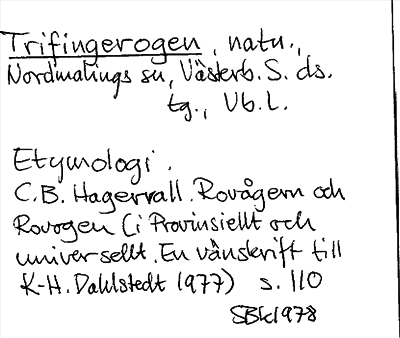 Trifingerogen, natn.,
Nordmalings sn, Västerb. S. ds.
tg., Vb. L.
Etymologi.
C.B. Hagervall. Rovågern och
Rovogen (i Provinsiellt och
universellt. En vänskrift till
K-H. Dahlstedt 1977) s. 110
SBk1978